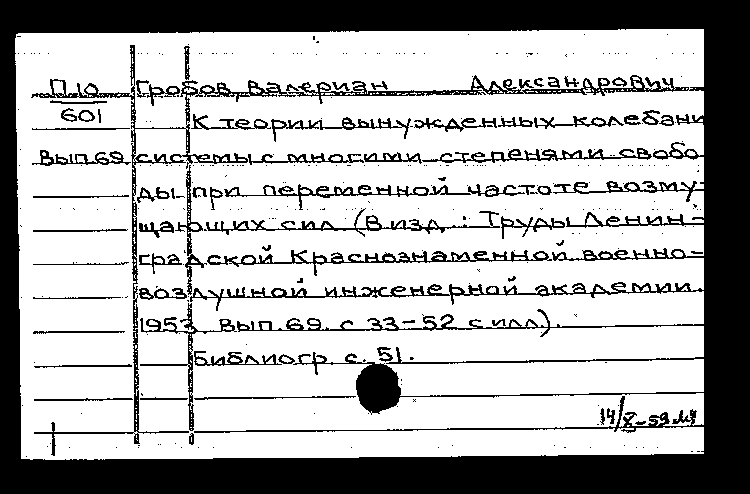 П 10 Гробов, Валериан Александрович
601 К теории вынужденных колебани
Вып. 69 системы с многими степенями свобо
ды при переменной частоте возму-
щающих сил (В изд.: Труды Ленин-
градской Краснознаменной военно-
воздушной инженерной академии.
1953. Вып. 69. с 33-52 с илл).
Библиогр. с. 51.
14/X-59